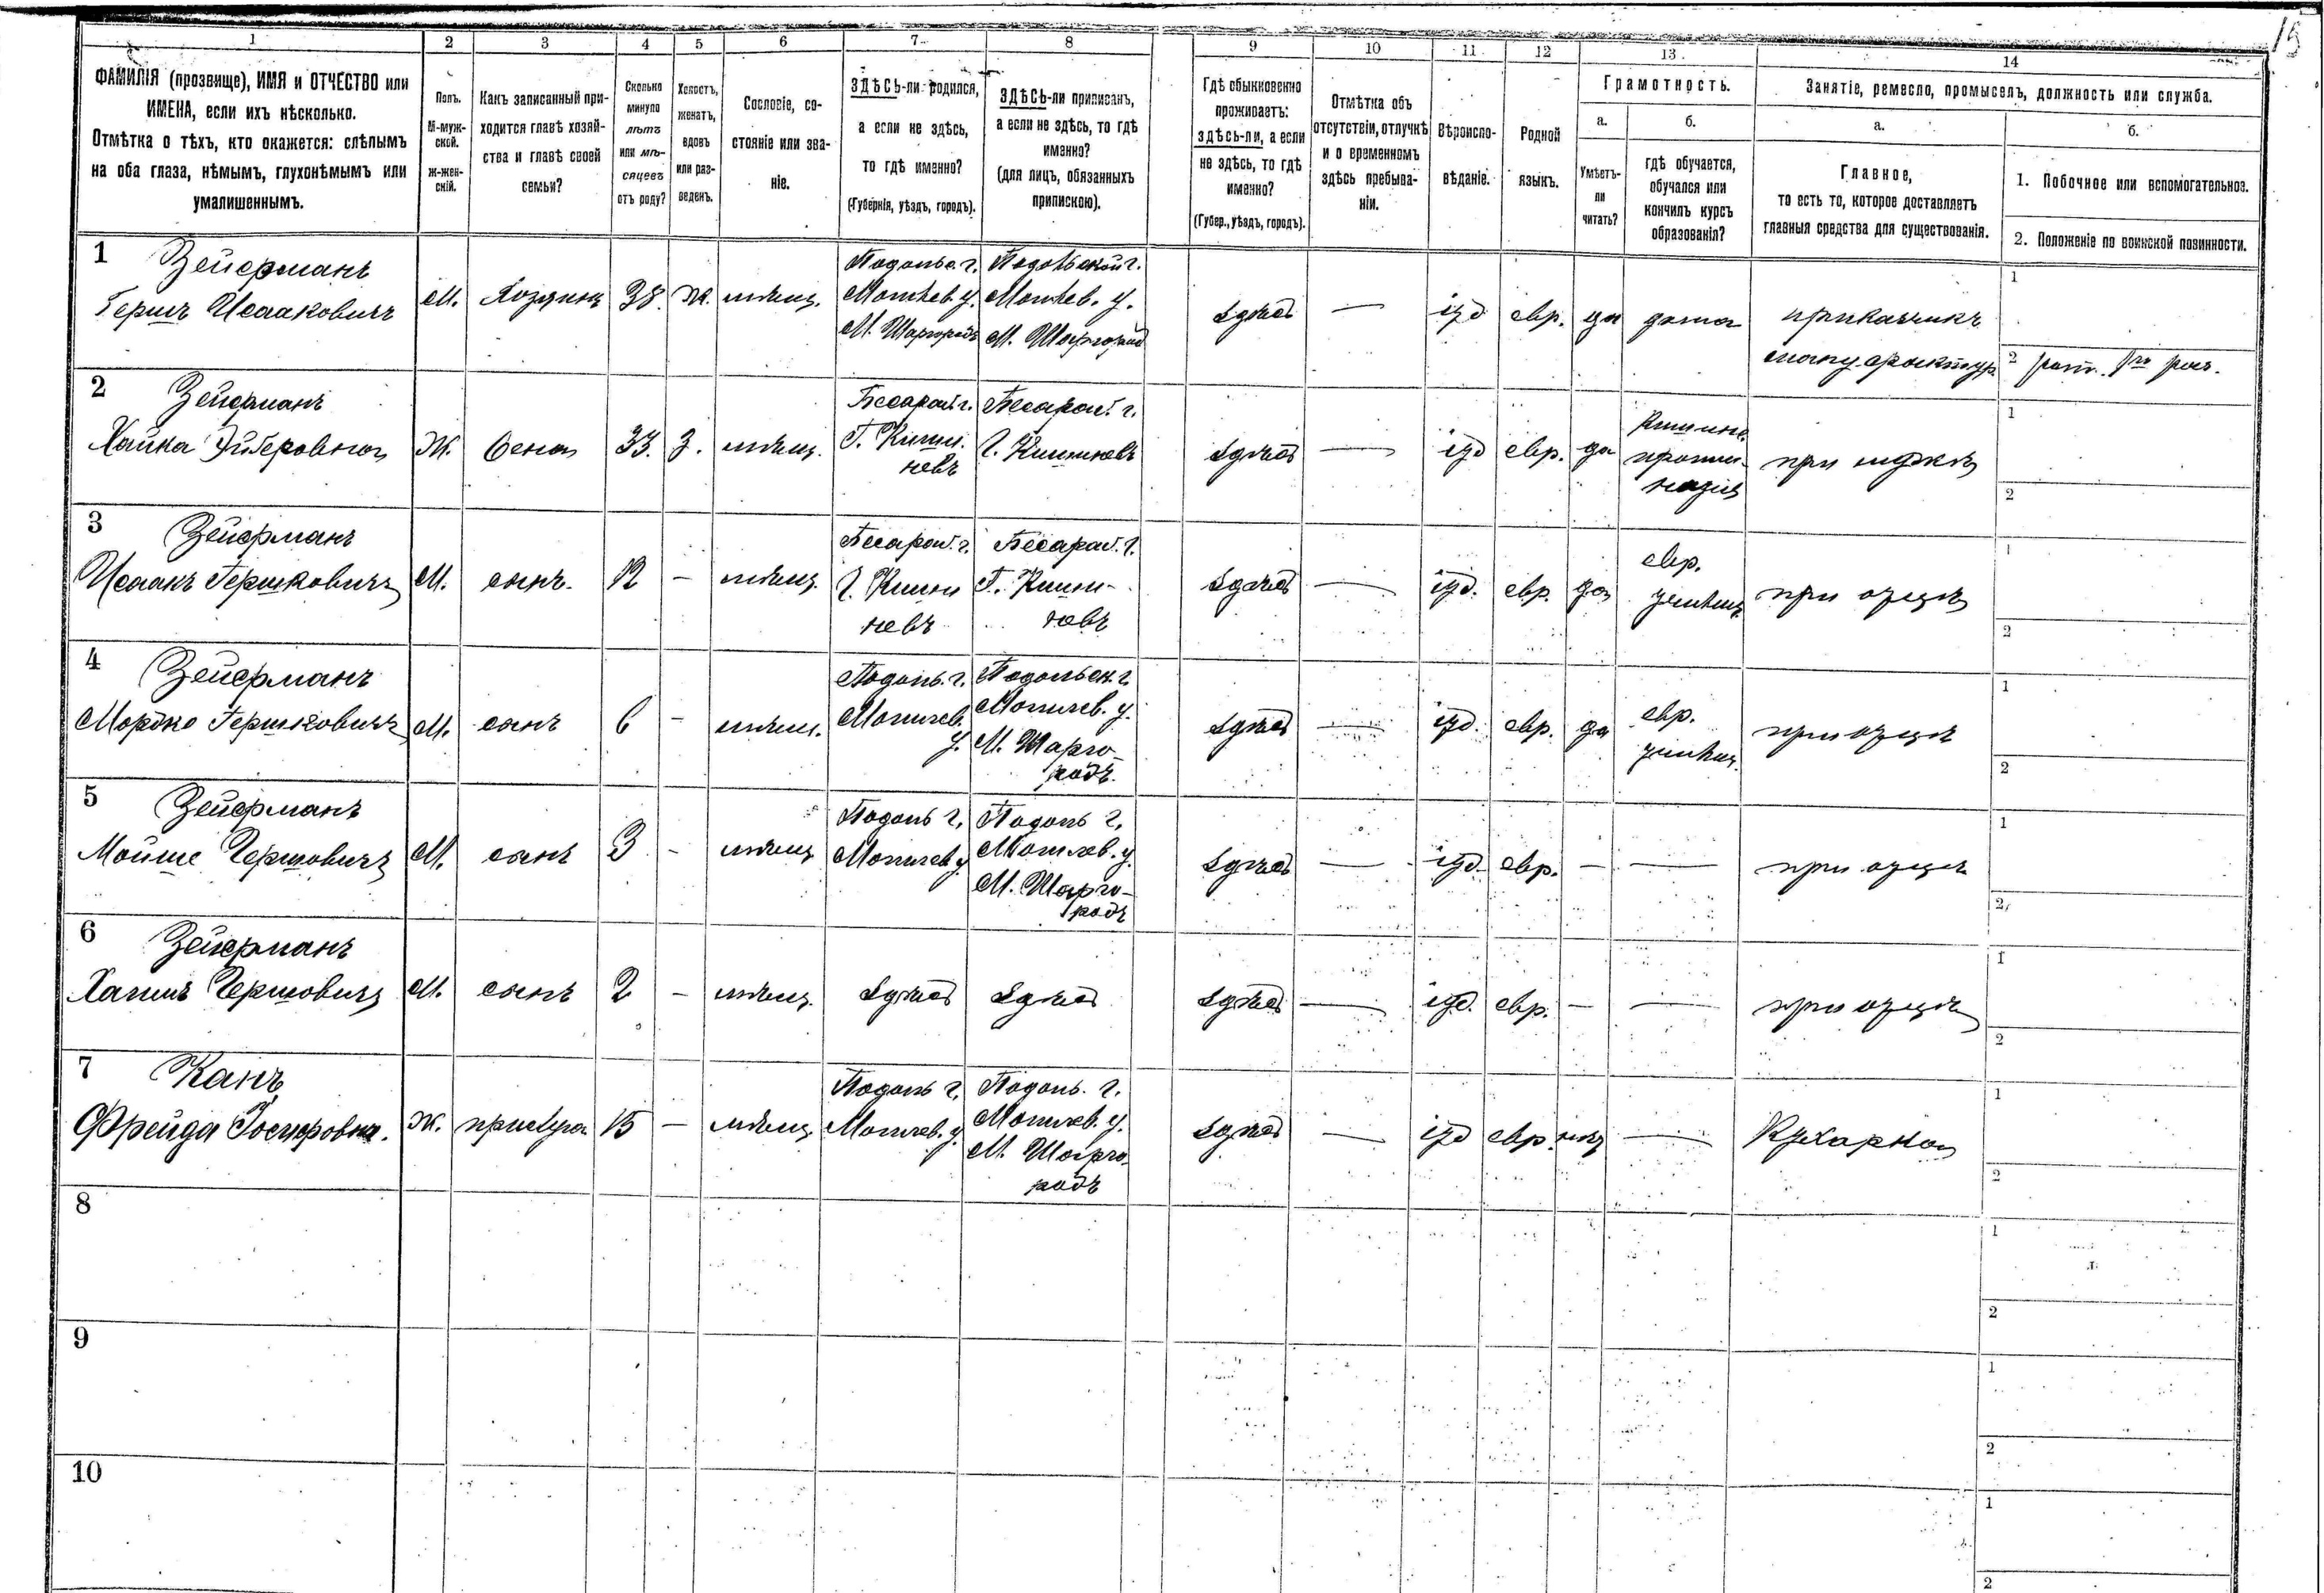 15
1 2 3 4 5 6 7 8 9 10 11 12 13 14
ФАМИЛІЯ (прозвище), ИМЯ и ОТЧЕСТВО или
ИМЕНА, если ихъ нѣсколько.
Отмѣтка о тѣхъ, кто окажется: слѣпымъ
на оба глаза, нѣмымъ, глухонѣмымъ или
умалишеннымъ.
Полъ.
М-муж-
ской.
Ж-жен-
скій.
Какъ записанный при-
ходится главѣ хозяй-
ства и главѣ своей
семьи?
Сколько
минуло
лѣтъ
или мѣ-
сяцевъ
отъ роду?
Холостъ,
женатъ,
вдовъ
или раз-
веденъ.
Сословіе, со-
стояніе или зва-
ніе.
ЗДѢСЬ-ли родился,
а если не здѣсь,
то гдѣ именно?
(Губернія, уѣздъ, городъ).
ЗДѢСЬ-ли приписанъ,
а если не здѣсь, то гдѣ
именно?
(для лицъ, обязанныхъ
припискою).
Гдѣ обыкновенно
проживаетъ:
здѣсь-ли, а если
не здѣсь, то гдѣ
именно?
(Губер., уѣздъ, городъ).
Отмѣтка объ
отсутствіи, отлучкѣ
и о временномъ
здѣсь пребыва-
ніи.
Вѣроиспо-
вѣданіе.
Родной
языкъ.
Грамотность.
а.
Умѣетъ-
ли
читать?
б.
гдѣ обучается,
обучался или
кончилъ курсъ
образованія?
Занятіе, ремесло, промыселъ, должность или служба.
а.
Главное,
то есть то, которое доставляетъ
главныя средства для существованія.
б.
1. Побочное или вспомогательное.
2. Положеніе по воинской повинности.
1 Зейерманъ
Гершъ Исааковичъ
М.
Хозяинъ
38.
Ж.
мѣщ.
Подольс. г.
Могилев. у.
М. Шаргородъ
Подольской г.
Могилев. у.
М. Шаргородъ
здѣсь
—
іуд
евр.
да
дома
приказчикъ
мануфактур.
1
2 рат. 1го раз.
2 Зейерманъ
Хайка
Ж.
жена
33.
З.
мѣщ.
Бесараб. г.
Г. Киши-
невъ
Бесараб. г.
Г. Кишиневъ
здѣсь
—
іуд
евр.
да
Кишине.
прогим-
назія
при мужѣ
1
2
3 Зейерманъ
Исаакъ Гершковичъ
М.
сынъ.
12
-
мѣщ.
Бесараб. г.
Г. Киши
невъ
Бесараб. г.
Г. Киши-
невъ
здѣсь
—
іуд.
евр.
да
евр.
училищ.
при отцѣ
1
2
4 Зейерманъ
Мордко Гершковичъ
М.
сынъ
6
-
мѣщ.
Подоль. г.
Могилев.
у.
Подольск. г.
Могилев. у.
М. Шарго-
родъ.
здѣсь
—
іуд.
евр.
да
евр.
училищ.
при отцѣ
1
2
5 Зейерманъ
Мойше Гершовичъ
М.
сынъ
3
-
мѣщ
Подоль г.
Могилев у.
Подоль г.
Могилев. у.
М. Шарго-
родъ
здѣсь
—
іуд.
евр.
-
—
при отцѣ
1
2
6 Зейерманъ
Гершовичъ
М.
сынъ
2
-
мѣщ.
здѣсь
здѣсь
здѣсь
—
іуд.
евр.
-
—
при отцѣ
1
2
7 Канъ
Фрейда
Ж.
прислуга
15
-
мѣщ.
Подоль г.
Могилев. у.
Подоль. г.
Могилев. у.
М. Шарго-
родъ
здѣсь
—
іуд
евр.
нѣтъ
—
Кухарка
1
2
8
1
2
9
1
2
10
1
2